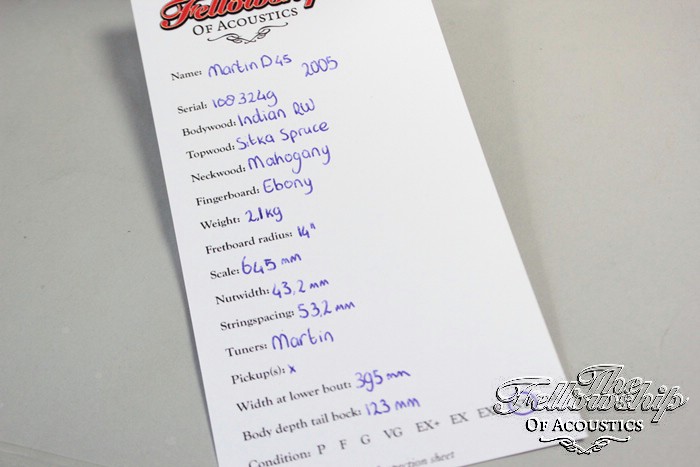 Fellowship
OF ACOUSTICS
Name: Martin D45 2005
Serial: 1083249
Bodywood: Indian RW
Topwood: Sitka Spruce
Neckwood: Mahogany
Fingerboard: Ebony
Weight: 2,1 kg
Fretboard radius: 14"
Scale: 645 mm
Nutwidth: 43,2 mm
Stringspacing: 53,2 mm
Tuners: Martin
Pickup(s): x
Width at lower bout: 395 mm
Body depth tail bock: 123 mm
Condition: P F G VG EX+ EX
sheet
The
Fellowship
OF ACOUSTICS